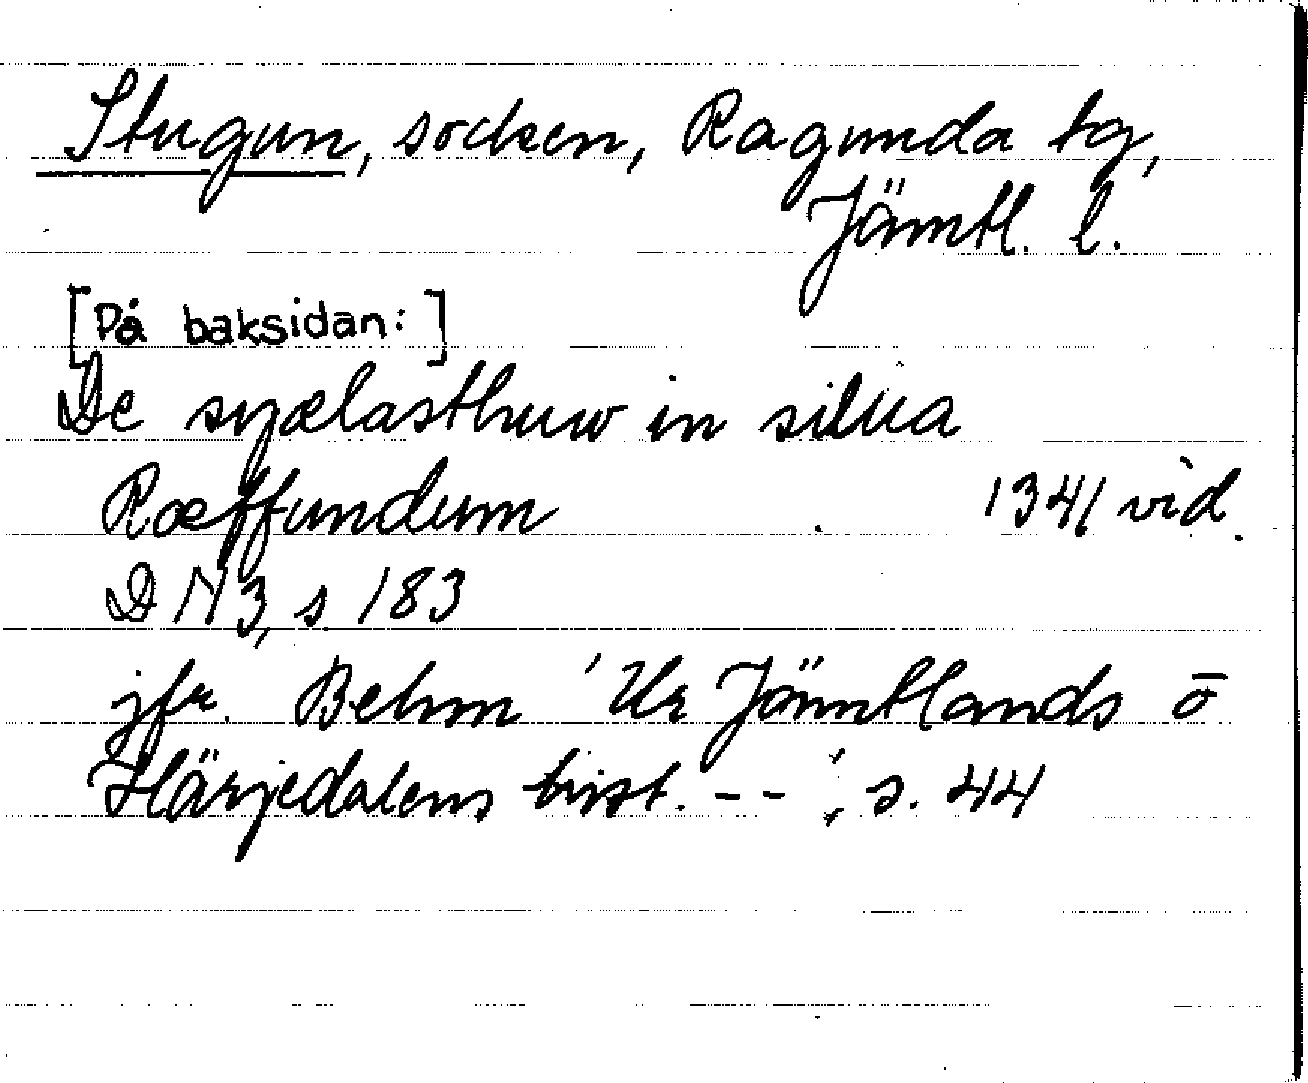 Stugun, socken, Ragunda tg,
Jämtl. l.
[På baksidan:]
De syælasthuw in silua
Ræffundum 1341 vid.
DN 3, s. 183
jfr. Behm 'Ur Jämtlands o
Härjedalens hist. - -', s. 44